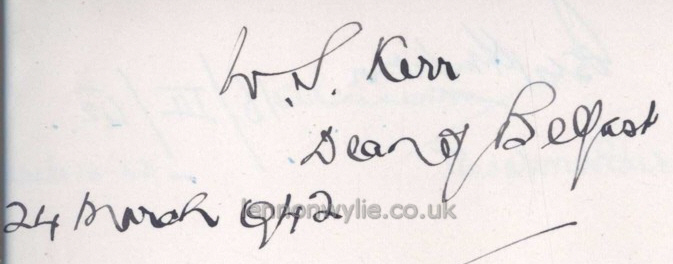 W. S. Kerr
Dean of Belfast
24 March 1942
lennonwylie.co.uk